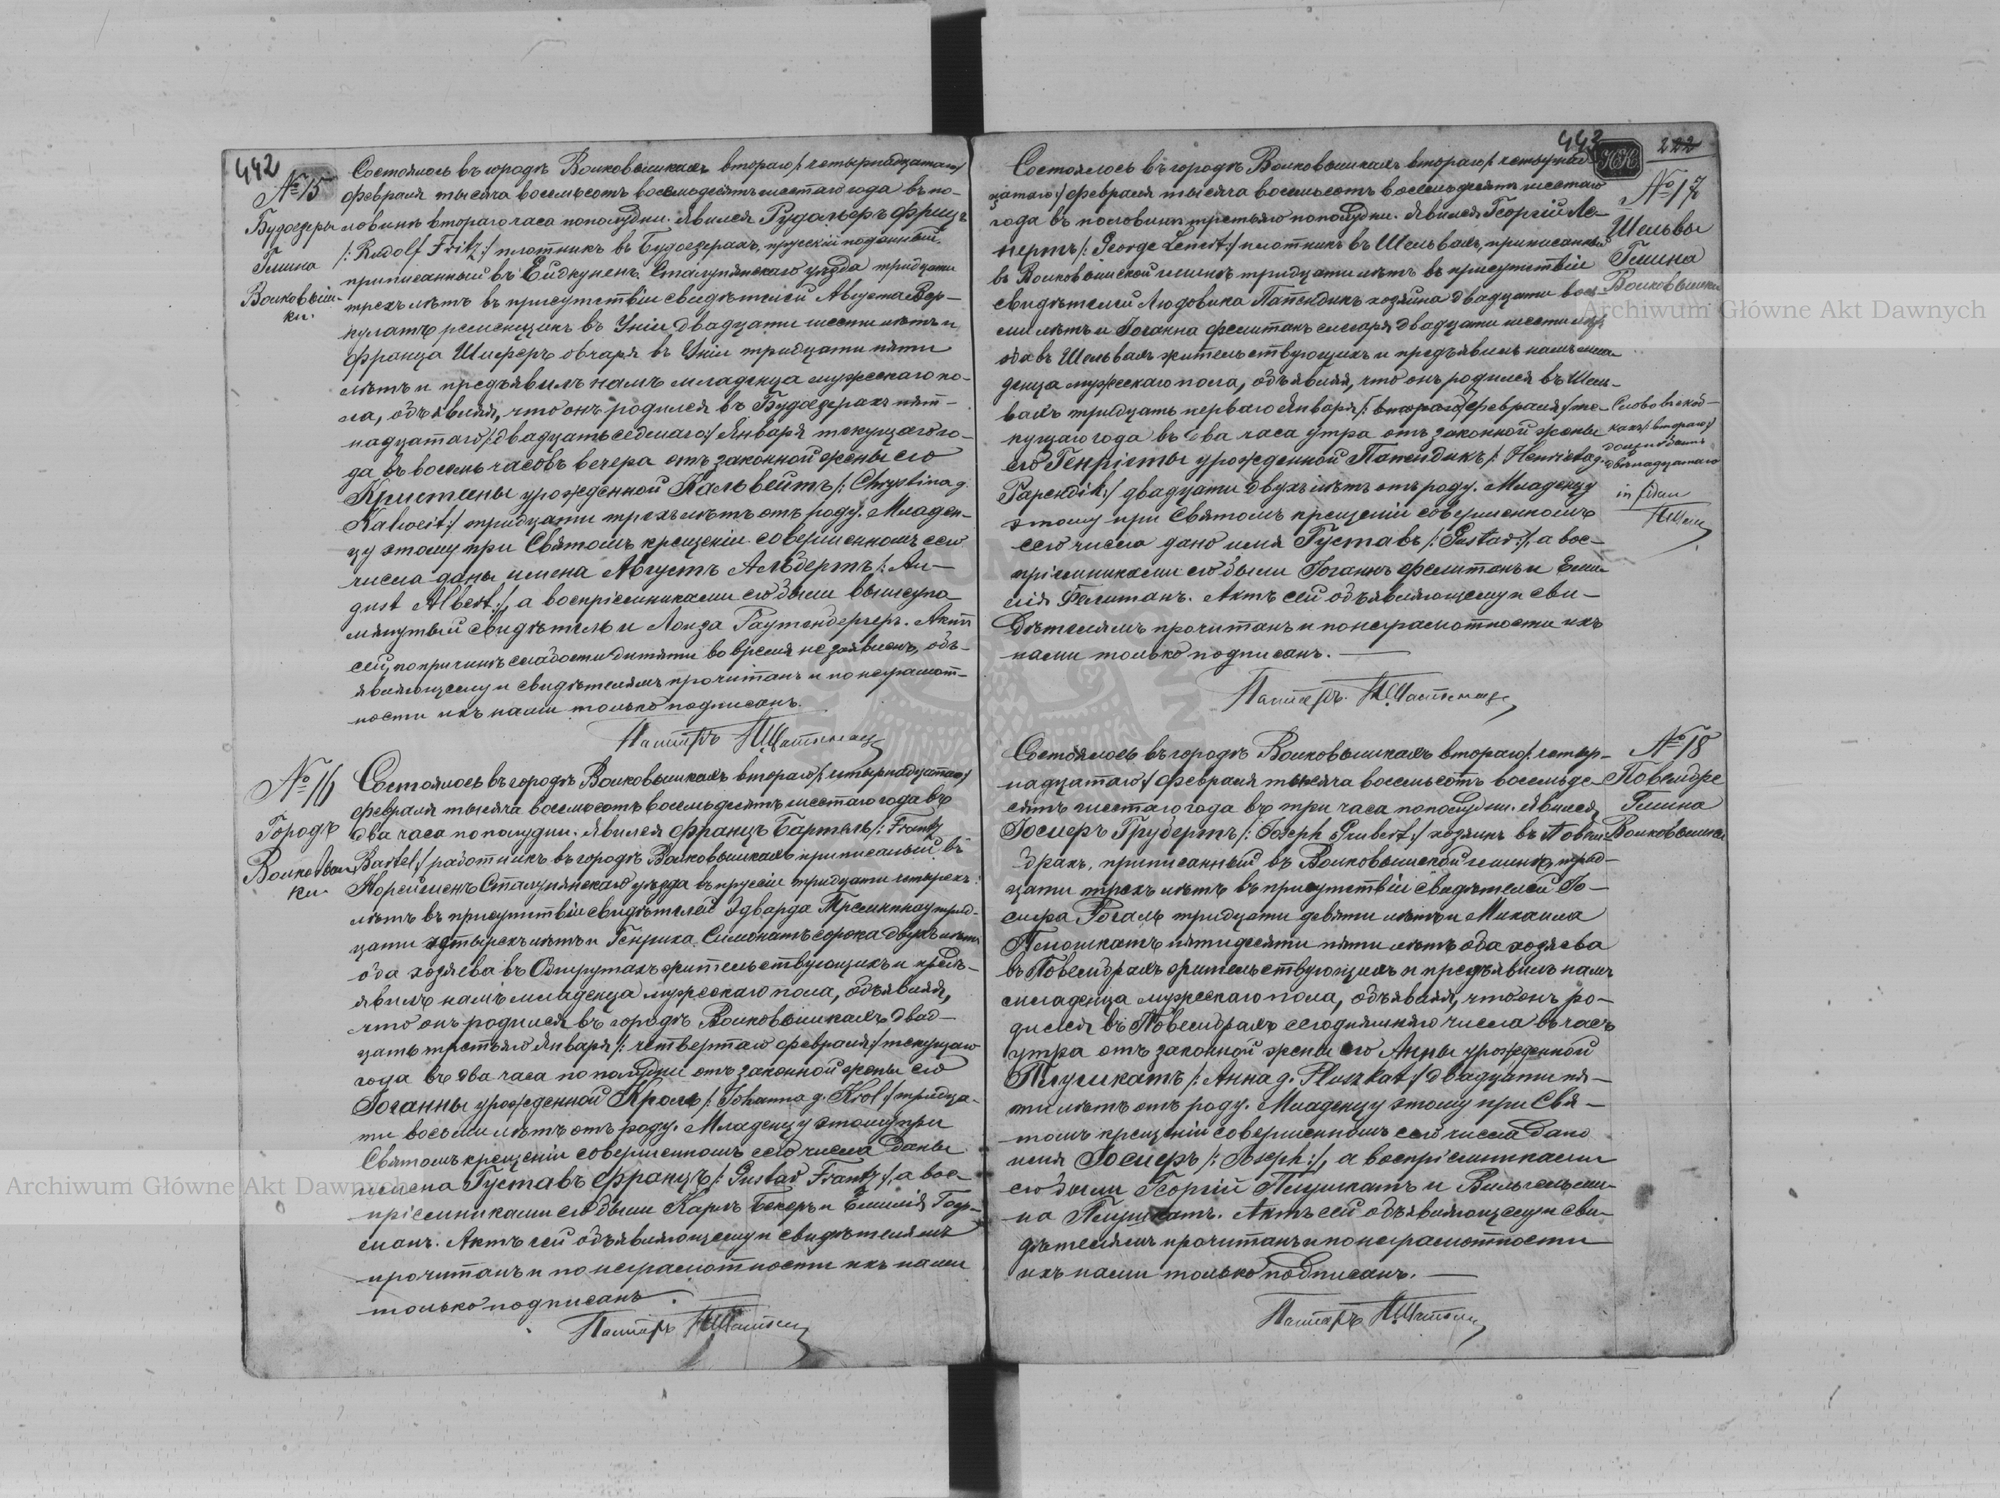 442
№ 15
Будозеры
Гмина
Волковыш-
ки.
Состоялось въ городѣ Волковышкахъ втораго/четырнадцатаго/
февраля тысяча восемьсотъ восемьдесятъ шестаго года въ по-
ловинѣ втораго часа пополудни. Явился Рудольфъ Фрицъ
/: Rudolf Fritz:/ плотникъ въ Будозерахъ, прусскій подданный,
приписанный въ Ейдкуненъ Сталупянскаго уѣзда тридцати
трехъ лѣтъ въ присутствіи свидѣтелей Августа Вер-
ременщикъ въ Уніи двадцати шести лѣтъ и
Франца Шиферъ овчаря въ Уніи тридцати пяти
лѣтъ и предъявилъ намъ младенца мужескаго по-
ла, объявляя, что онъ родился въ Будозерахъ пят-
надцатаго/:двадцать седьмаго:/ Января текущаго го-
да въ восемь часовъ вечера отъ законной жены его
Христины урожденной Кальвейтъ /: Chrystina g.
Kalweit:/ тридцати трехъ лѣтъ отъ роду. Младен-
цу этому при Святомъ крещеніи совершенномъ сего
числа даны имена Августъ Альбертъ /: Au-
gust Albert:/, а воспріемниками его были вышеупо-
мянутый свидѣтель и Луиза Гаутенбергеръ. Актъ
сей, по причинѣ слабости дитяти во время не заявленъ, объ-
являющему и свидѣтелямъ прочитанъ и по неграмот-
ности ихъ нами только подписанъ.
Пасторъ
№ 16
Городъ
Волковыш-
ки.
Состоялось въ городѣ Волковышкахъ втораго/четырнадцатаго/
февраля тысяча восемьсотъ восемьдесятъ шестаго года въ
два часа пополудни. Явился Францъ Бартель /: Frantz
Bartel:/ работникъ въ городѣ Волковышкахъ приписанный въ
Сталупянскаго уѣзда въ Пруссіи тридцати четырехъ
лѣтъ въ присутствіи свидѣтелей Эдварда трид-
цати четырехъ лѣтъ и Генриха Симонатъ сорока двухъ лѣтъ
оба хозяева въ жительствующихъ и предъ-
явилъ намъ младенца мужескаго пола, объявляя,
что онъ родился въ городѣ Волковышкахъ двад-
цать третьяго Января /: четвертаго февраля:/ текущаго
года въ два часа пополудни отъ законной жены его
Іоганны урожденной Кроль /: Johanna g. Krol:/ тридца-
ти восьми лѣтъ отъ роду. Младенцу этому при
Святомъ крещеніи совершенномъ сего числа даны
имена Густавъ Францъ /: Gustav Frantz:/, а вос-
пріемниками его были Карлъ Бекеръ и Емилія Гоф-
манъ. Актъ сей объявляющему и свидѣтелямъ
прочитанъ и по неграмотности ихъ нами
только подписанъ.
Пасторъ
443
222
№ 17
Шельвы
Гмина
Волковышки
Состоялось въ городѣ Волковышкахъ втораго/четырнад-
цатаго/ февраля тысяча восемьсотъ восемьдесятъ шестаго
года въ половинѣ третьяго пополудни. Явился Георгій Ле-
нертъ /: George Lenert:/ плотникъ въ Шельвахъ, приписанный
въ Волковышской гминѣ тридцати лѣтъ въ присутствіи
свидѣтелей Людовика Папендикъ хозяина двадцати вось-
ми лѣтъ и Іоганна Фелитанъ слесаря двадцати шести лѣтъ
оба въ Шельвахъ жительствующихъ и предъявилъ намъ мла-
денца мужескаго пола, объявляя, что онъ родился въ Шель-
вахъ тридцать перваго Января/: втораго/ февраля/ те-
кущаго года въ два часа утра отъ законной жены
его Генріеты урожденной Папендикъ /: Henrieta g.
Papendik:/ двадцати двухъ лѣтъ отъ роду. Младенцу
этому при Святомъ крещеніи совершенномъ
сего числа дано имя Густавъ /: Gustav:/, а вос-
пріемниками его были Іоганнъ Фелитанъ и Еми-
лія Фелитанъ. Актъ сей объявляющему и сви-
дѣтелямъ прочитанъ и по неграмотности ихъ
нами только подписанъ.
Слово въ скоб-
кахъ/: втораго:/
двѣнадцатаго
in fidem
Пасторъ
№ 18
Повембре
Гмина
Волковышки
Состоялось въ городѣ Волковышкахъ втораго/четыр-
надцатаго:/ февраля тысяча восемьсотъ восемьде-
сятъ шестаго года въ три часа пополудни. Явился
Іосифъ Грубертъ /: Joseph Grubert:/ хозяинъ въ Повем-
брахъ, приписанный въ Волковышской гминѣ, трид-
цати трехъ лѣтъ въ присутствіи свидѣтелей Іо-
сифа Рогаль тридцати девяти лѣтъ и Михаила
Плюшкатъ пятидесяти пяти лѣтъ оба хозяева
въ Повембрахъ жительствующихъ и предъявилъ намъ
младенца мужескаго пола, объявляя, что онъ ро-
дился въ Повембрахъ сегодняшняго числа въ часъ
утра отъ законной жены его Анны урожденной
Плушкатъ /: Anna g. Pluszkat:/ двадцати пя-
ти лѣтъ отъ роду. Младенцу этому при Свя-
томъ крещеніи совершенномъ сего числа дано
имя Іосифъ /: Joseph:/, а воспріемниками
его были Георгій Плушкатъ и Вильгельми-
на Плушкатъ. Актъ сей объявляющему и сви-
дѣтелямъ прочитанъ и по неграмотности
ихъ нами только подписанъ.
Пасторъ
Archiwum Główne Akt Dawnych
Archiwum Główne Akt Dawnych